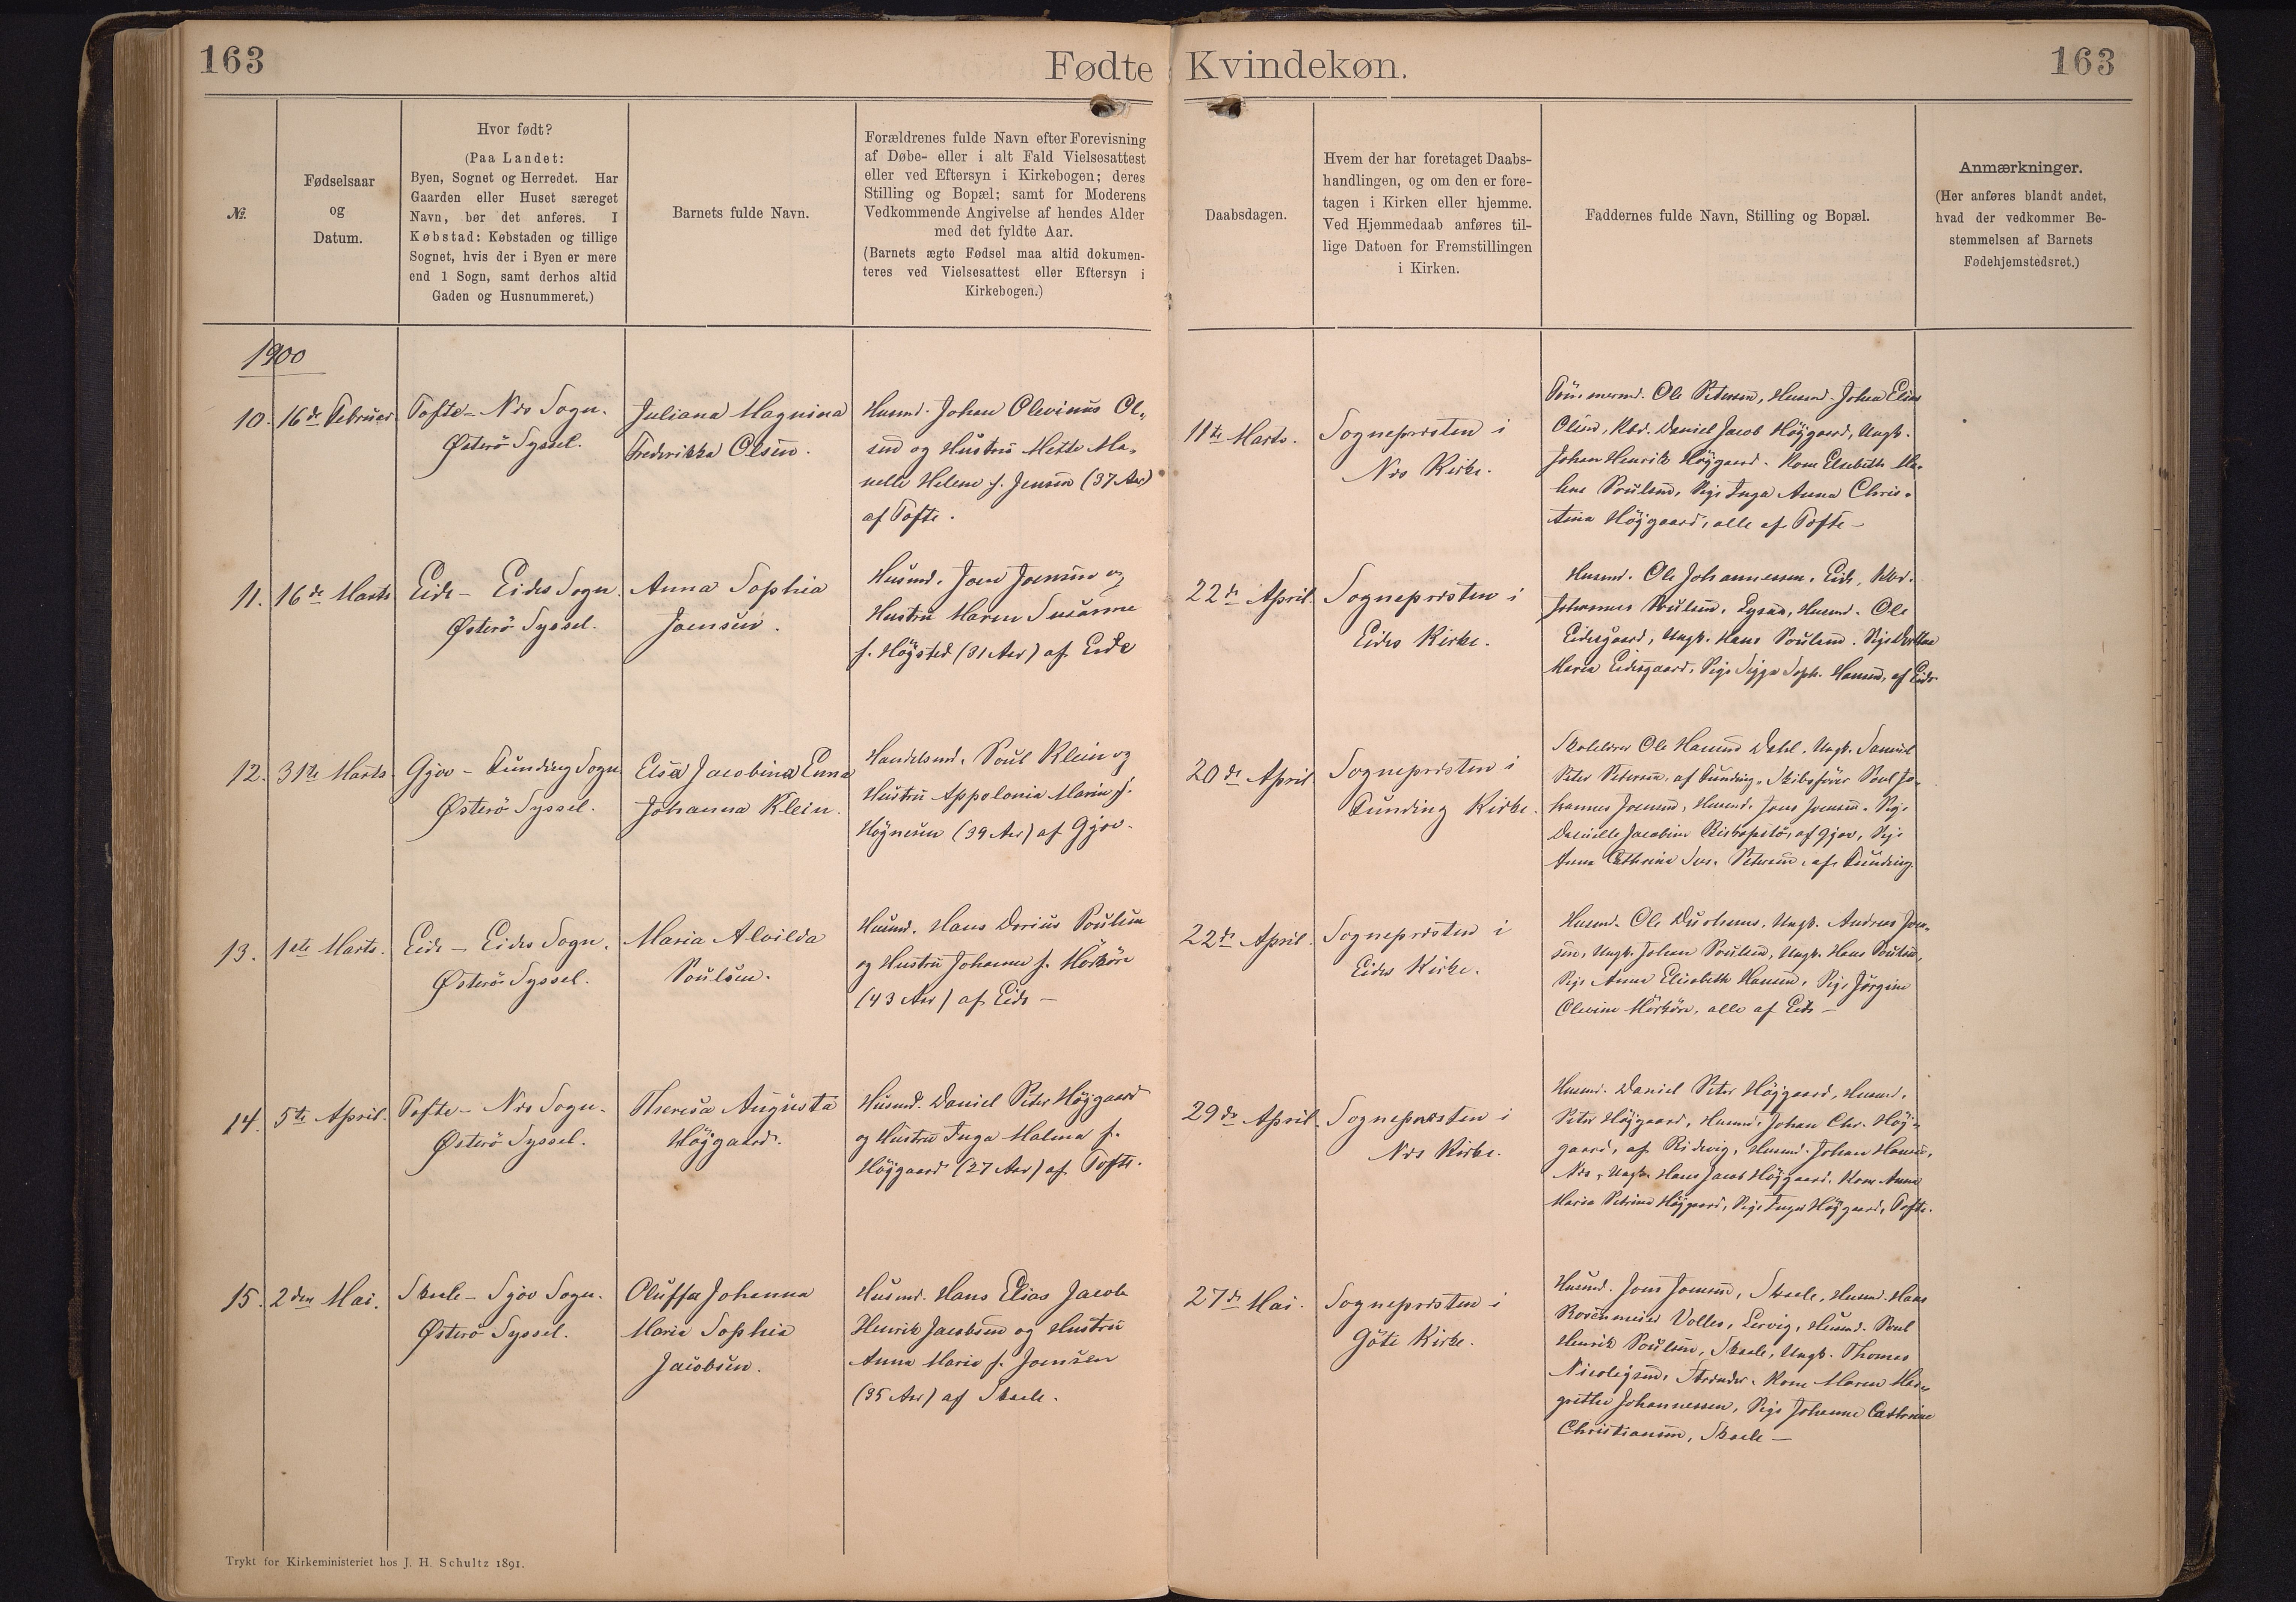 163
Fødte
Kvindekøn.
163
№.
Fødselsaar
og
Datum.
Hvor født?
(Paa Landet:
Byen, Sognet og Herredet. Har
Gaarden eller Huset særeget
Navn, bør det anføres. I
Købstad: Købstaden og tillige
Sognet, hvis der i Byen er mere
end 1 Sogn, samt derhos altid
Gaden og Husnummeret.)
Barnets fulde Navn.
Forældrenes fulde Navn efter Forevisning
af Døbe- eller i alt Fald Vielsesattest
eller ved Eftersyn i Kirkebogen; deres
Stilling og Bopæl; samt for Moderens
Vedkommende Angivelse af hendes Alder
med det fyldte Aar.
(Barnets ægte Fødsel maa altid dokumen-
teres ved Vielsesattest eller Eftersyn i
Kirkebogen.)
Daabsdagen.
Hvem der har foretaget Daabs-
handlingen, og om den er fore-
tagen i Kirken eller hjemme.
Ved Hjemmedaab anføres til-
lige Datoen for Fremstillingen
i Kirken.
Faddernes fulde Navn, Stilling og Bopæl.
Anmærkninger.
(Her anføres blandt andet,
hvad der vedkommer Be-
stemmelsen af Barnets
Fødehjemstedsret.)
1900
10.
16de Februar
Tofte - Næs Sogn.
Østerö Syssel.
Juliana Magnina
Frederikka Olsen.
Husmd. Johan Olevinus Ol-
sen og Hustru Mette Ma-
nelle Helene f. Jensen (37 Aar)
af Tofte.
11te Marts.
Sognepræsten i
Næs Kirke.
Tömmermd. Ole Petersen, Husmd. Johan Elias
Olsen, Kbd. Daniel Jacob Höjgaard, Ungk.
Johan Henrik Höjgaard. Kone Elsebeth He-
lene Poulsen, Pige Inga Anna Chris-
tina Höjgaard, alle af Tofte -
11.
16de Marts
Eide - Eides Sogn.
Østerö Syssel.
Anna Sophia
Joensen.
Husmd. Joen Joensen og
Hustru Maren Susanne
f. Högsted (31 Aar) af Eide
22de April.
Sognepræsten i
Eides Kirke.
Husmd. Ole Johannessen. Eide, Kbd.
Johannes Poulsen, Husmd. Ole
Eidesgaard, Ungk. Hans Poulsen. Pige
Maria Eidesgaard, Pige Sigga Soph. Hansen, af Eide
12.
31te Marts
Gjov - Funding Sogn
Østerö Syssel.
Elsa Jacobina Enna
Johanna Klein.
Handelsmd. Poul Klein og
Hustru Appolonia Marie f.
Högnesen (39 Aar) af Gjov.
20de April
Sognepræsten i
Funding Kirke.
Skolelærer Ole Hansen Dahl. Ungk. Samuel
Peter Petersen, af Funding. Skibsförer Poul Jo-
hannes Joensen, Husmd. Jens Joensen. Pige
Danielle Jacobine Biskopstö, af Gjov, Pige
Anna Cathrine Sus. Petersen, af Funding.
13.
1ste Marts.
Eide - Eides Sogn.
Østerö Syssel.
Maria Alvilda
Poulsen.
Husmd. Hans Dorius Poulsen
og Hustru Johanne f. Hörköre
(43 Aar) af Eide -
22de April.
Sognepræsten i
Eides Kirke.
Husmd. Ole Durhuus, Ungk. Andreas Joen-
sen, Ungk. Johan Poulsen, Ungk. Hans Poulsen,
Pige Anne Elisabeth Hansen, Pige Jörgine
Olevine Hörköre, alle af Eide -
14.
5te April.
Tofte - Næs Sogn.
Østerö Syssel.
Theresa Augusta
Höjgaard.
Husmd. Daniel Peter Höjgaard
og Hustru Inga Malena f.
Höjgaard (27 Aar) af Tofte.
29de April.
Sognepræsten i
Næs Kirke.
Husmd. Daniel Peter Höjgaard, Husmd.
Peter Höjgaard, Husmd. Johan Chr. Höj-
gaard, af Ridevig, Husmd. Johan Hansen,
Næs, Ungk. Hans Jacob Höjgaard. Kone Anna
Maria Petrine Höjgaard, Pige Inger Höjgaard, Tofte.
15.
2den Mai.
Skaale - Sjov Sogn.
Østerö Syssel.
Oluffa Johanna
Maria Sophia
Jacobsen.
Husmd. Hans Elias Jacob
Henrik Jacobsen og Hustru
Anna Maria f. Joensen
(35 Aar) af Skaale.
27de Mai.
Sognepræsten i
Göte Kirke.
Husmd. Jens Joensen, Skaale, Husmd. Hans
Rosenmeier Volles, Lervig, Husmd. Poul
Henrik Poulsen, Skaale, Ungk. Thomas
Nicolajsen, Strender. Kone Maren Mar-
grethe Johannessen, Pige Johanne Cathrine
Christiansen, Skaale -
Trykt for Kirkeministeriet hos J. H. Schultz 1891.